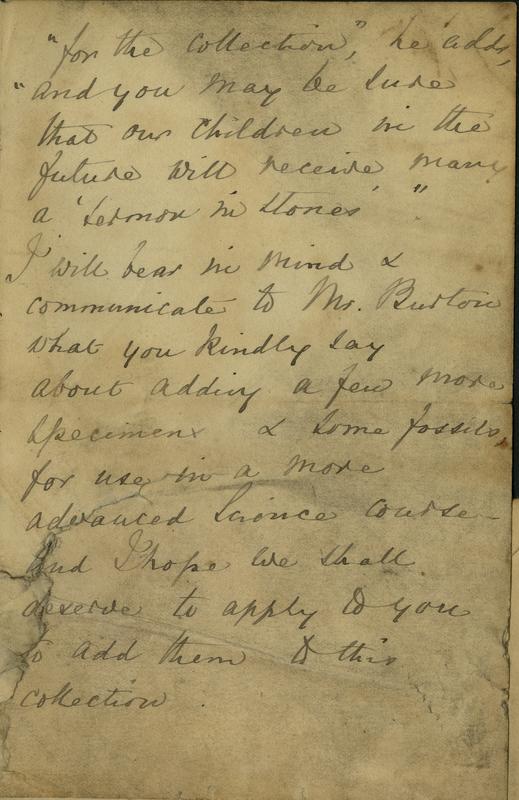 "for the collection", he adds,
"and you may be sure
that our children in the
future will receive many
a 'sermon in stones' "
I will bear in mind &
communicate to Mr. Burton
what you kindly say
about adding a few more
specimens & some fossils,
for use in a more
advanced Science course -
and I hope we shall
deserve to apply to you
to add them to this
collection.